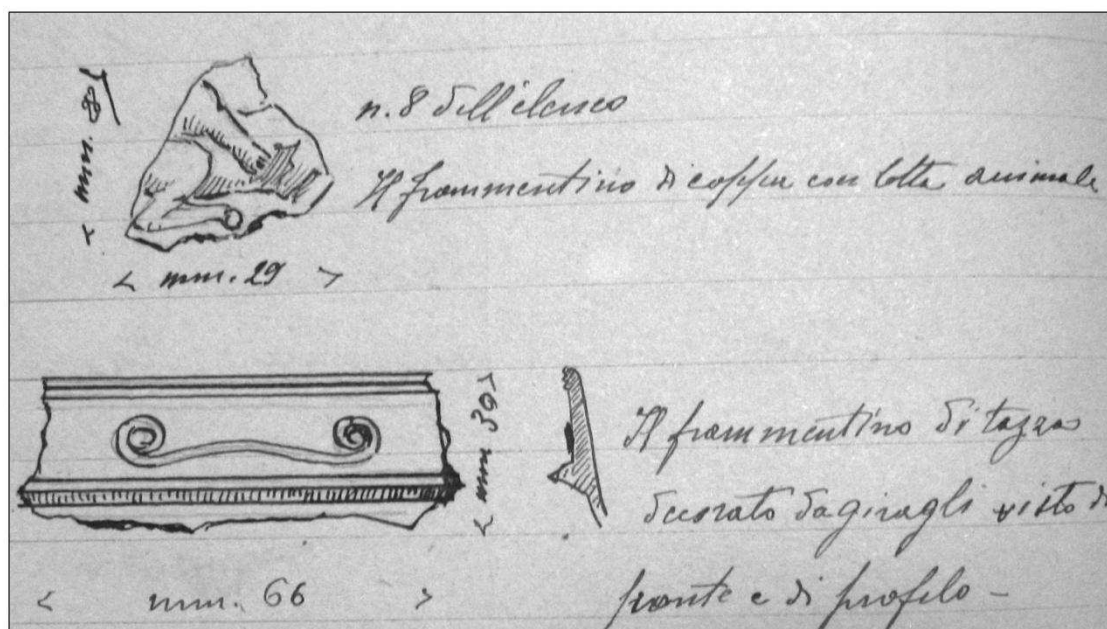 n. 8 dell'elenco
mm.
Il frammentino di coppa con lotta animale
< mm. 29 >
mm
Il frammentino di tazza
decorato da giragli visto di
< mm. 66 >
fronte e di profilo -